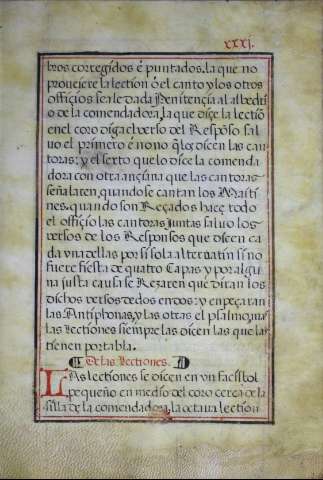 xxxj.
bros corregidos é puntados. la que no
proveiere la lection ó el canto y los otros
offiçios sea le dada Penitençia al albedri
o de la comendadora, la que diçe la lectiõ
en el coro diga el verso del Respõso sal
vo el primero é nono q̃ los diçen las can
toras: y el sexto que lo diçe la comenda
dora con otra ançiana que las cantoras
señalaren, quando se cantan los Maiti
nes. quando son Reçados haçe todo
el offiçio las cantoras juntas salvo los
versos de los Responsos que diçen ca
da vna dellas por si sola alternatin si no
fuere fiesta de quatro Capas y por algu
na justa causa se Rezaren que diran los
dichos versos dedos en dos: y enpeçaran
las Antiphonas, y las otras el psalmo, ma
las lectiones siempre las diçen las que las
tienen por tabla.
De las lectiones.
LAs lectiones se diçen en vn façistol
pequeño en medio del coro cerca de la
silla de la comendadora, la octava lection